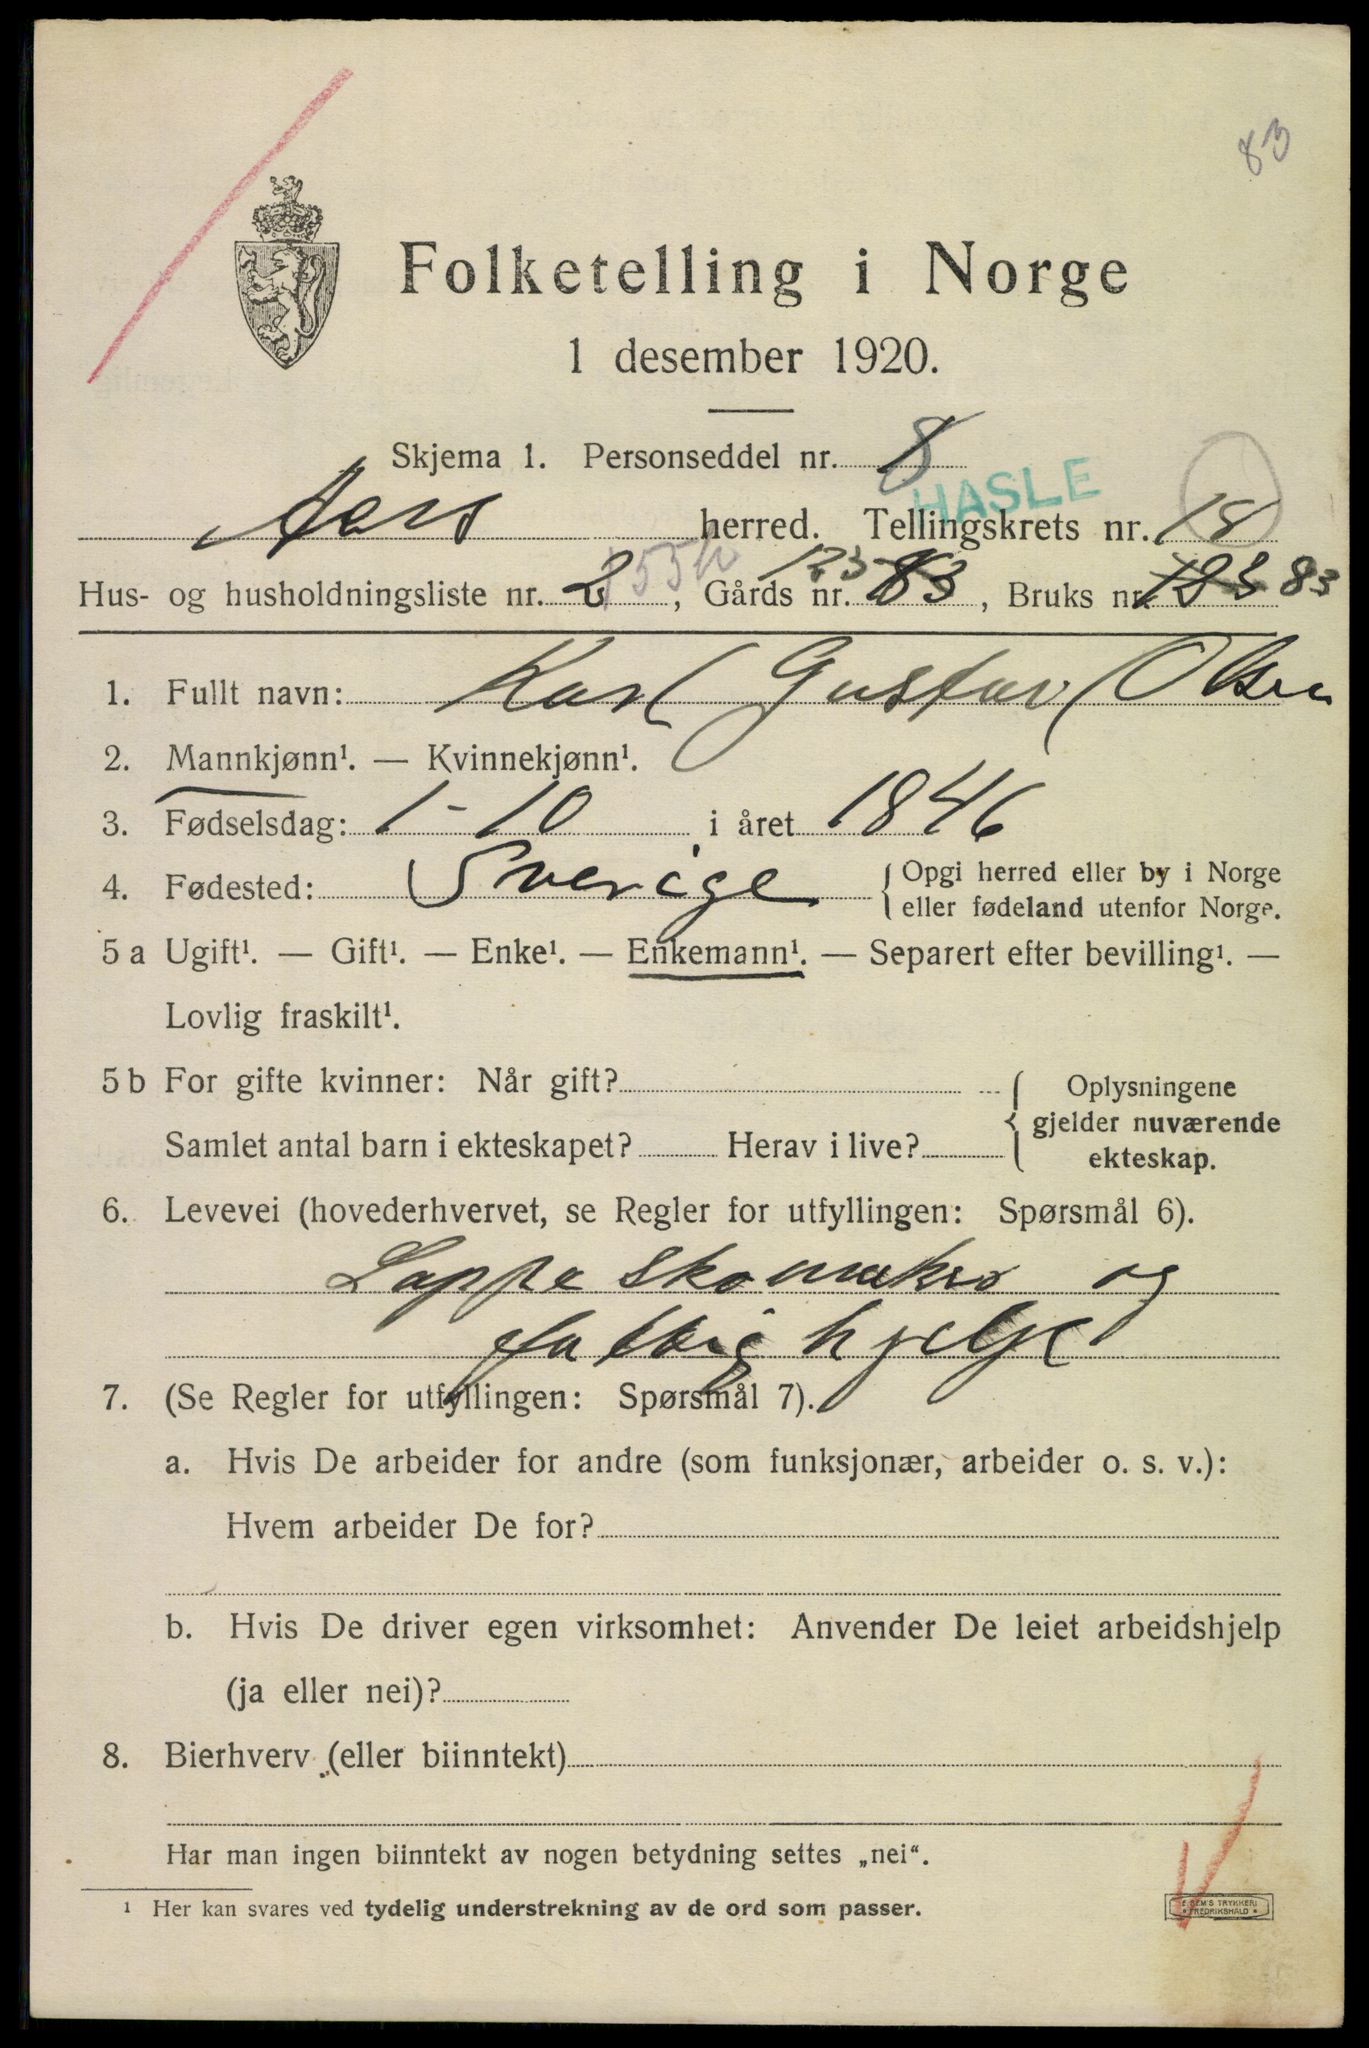 83
Folketelling i Norge
1 desember 1920.
Skjema 1. Personseddel nr. 8
HASLE
Aers herred. Tellingskrets nr. 18
Hus- og husholdningsliste nr. 2 , Gårds nr. 83 123 , Bruks nr. 123 83
1. Fullt navn: Karl Gustav Olsen
2. Mannkjønn¹. — Kvinnekjønn¹.
3. Fødselsdag: 1-10 i året 1846
4. Fødested: Sverige { Opgi herred eller by i Norge
eller fødeland utenfor Norge.
5 a Ugift¹. — Gift¹. — Enke¹. — Enkemann¹. — Separert efter bevilling¹. —
Lovlig fraskilt¹.
5 b For gifte kvinner: Når gift? { Oplysningene
gjelder nuværende
Samlet antal barn i ekteskapet? Herav i live? ekteskap.
6. Levevei (hovederhvervet, se Regler for utfyllingen: Spørsmål 6).
Lappeskomaker og
fattighjelp
7. (Se Regler for utfyllingen: Spørsmål 7).
a. Hvis De arbeider for andre (som funksjonær, arbeider o. s. v.):
Hvem arbeider De for?
b. Hvis De driver egen virksomhet: Anvender De leiet arbeidshjelp
(ja eller nei)?
8. Bierhverv (eller biinntekt)
Har man ingen biinntekt av nogen betydning settes „nei“.
¹ Her kan svares ved tydelig understrekning av de ord som passer.
E. SEM'S TRYKKERI
FREDRIKSHALD